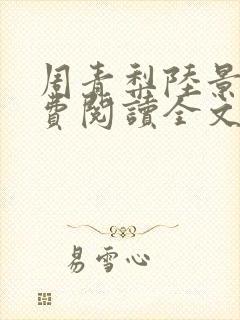 周青梨陸景
費閱讀全文
易雪心